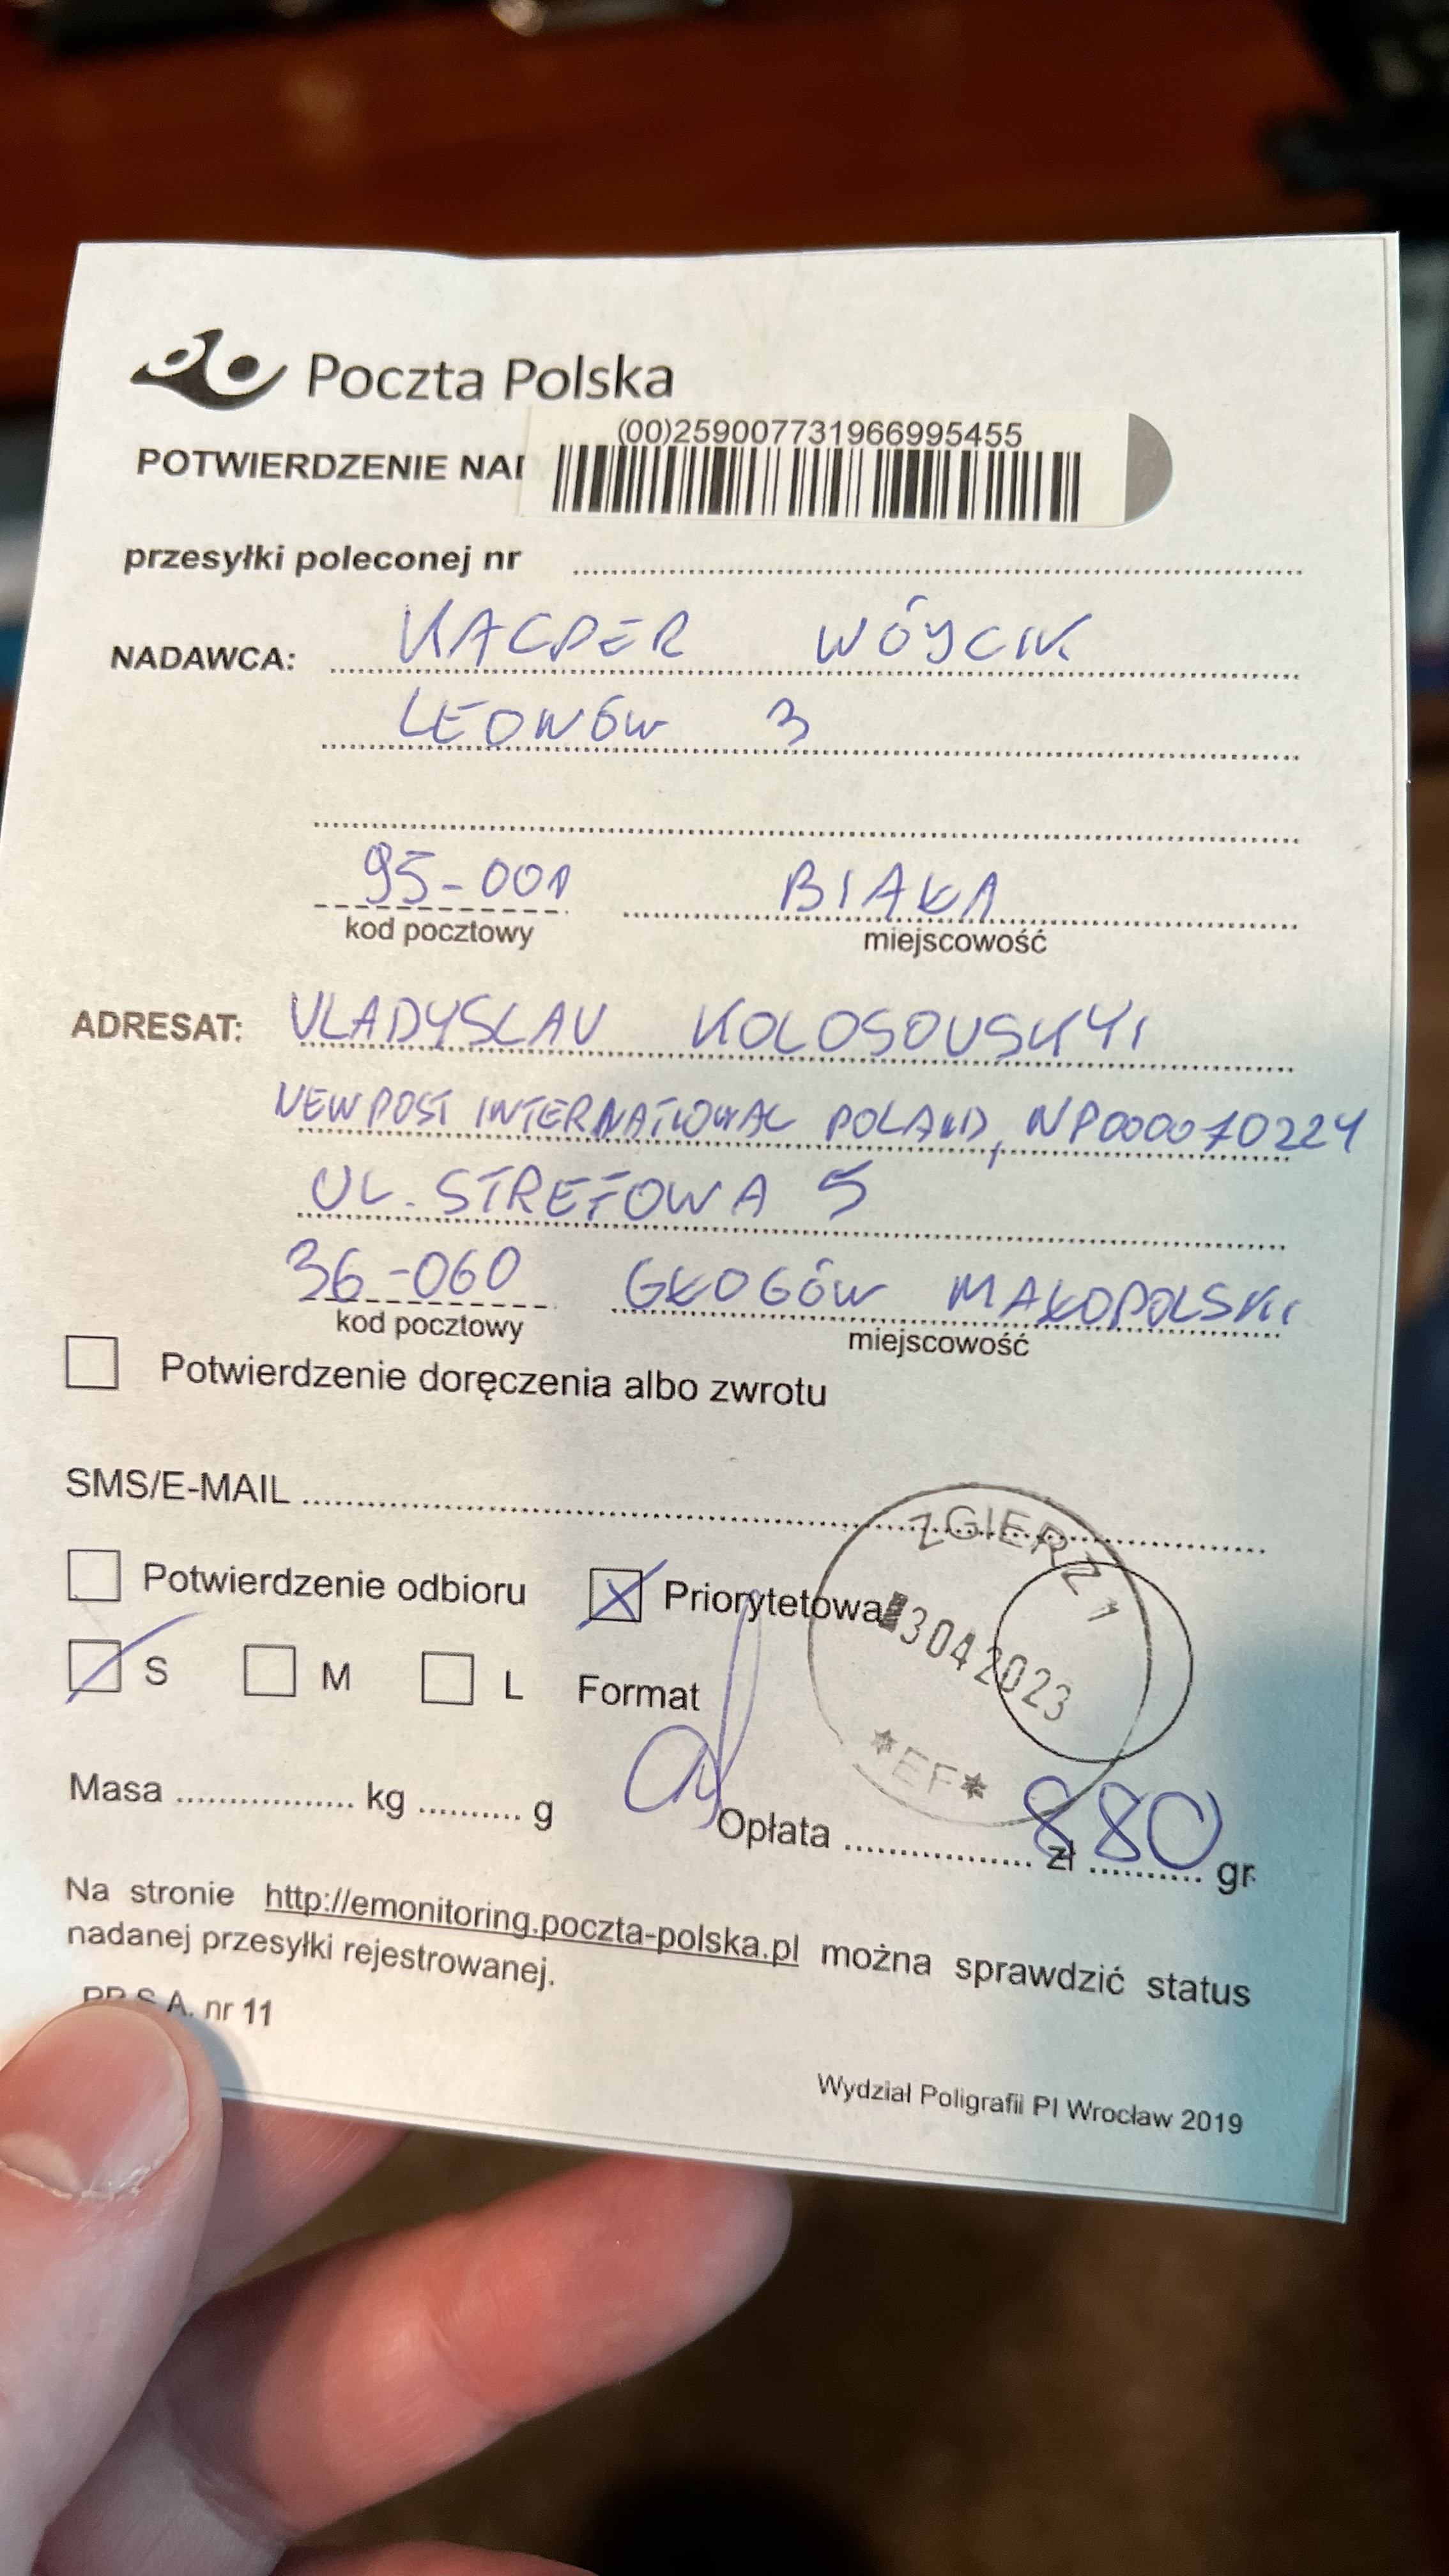 Poczta Polska
(00)259007731966995455
POTWIERDZENIE NA
przesyłki poleconej nr
NADAWCA: KACPER WÓJCIK
LEONÓW 3
95-001 BIAŁA
kod pocztowy miejscowość
ADRESAT: VLADYSLAV KOLOSOVSKYI
NEW POST INTERNATIONAL POLAND, NP000010224
UL. STREFOWA 5
36-060 GŁOGÓW MAŁOPOLSKI
kod pocztowy miejscowość
Potwierdzenie doręczenia albo zwrotu
SMS/E-MAIL
ZGIERZ 1
Potwierdzenie odbioru Priorytetowa
3 04 2023
S M L Format
*EF*
Masa kg g Opłata zł 880 gr
Na stronie http://emonitoring.poczta-polska.pl można sprawdzić status
nadanej przesyłki rejestrowanej.
S.A. nr 11
Wydział Poligrafii PI Wrocław 2019